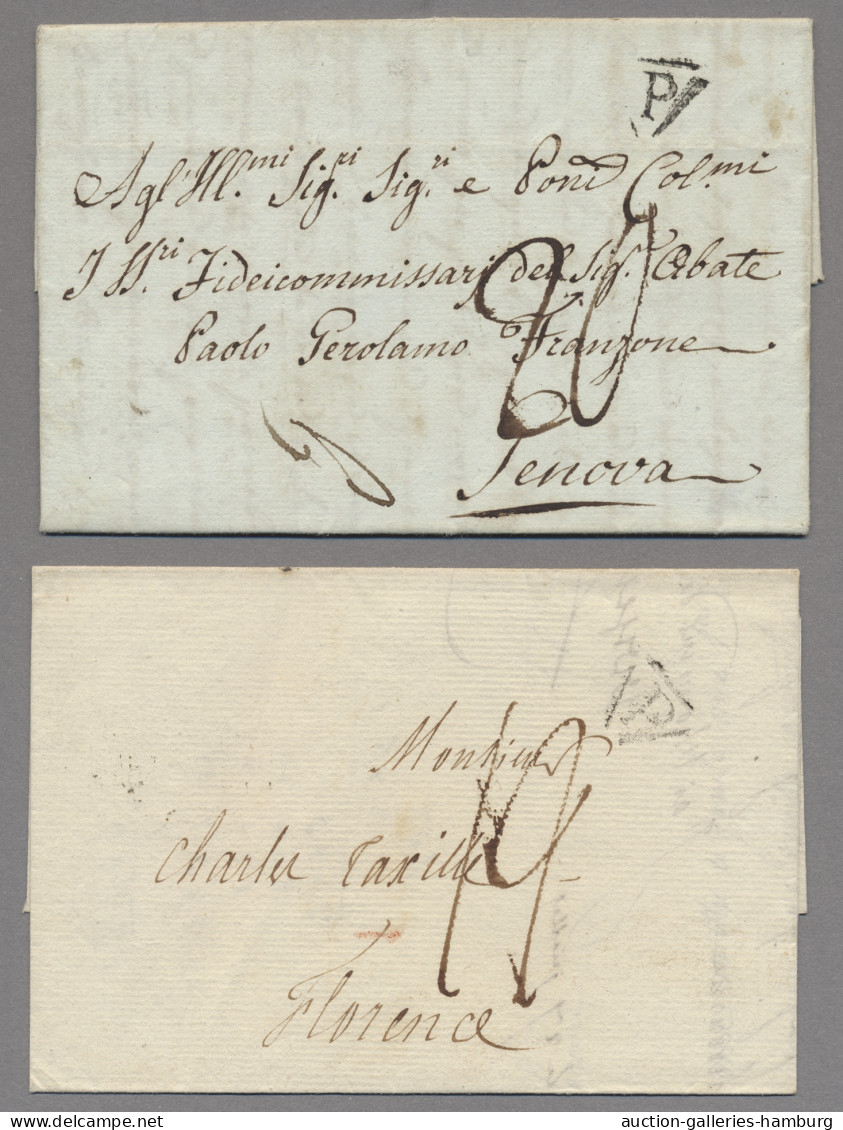 P
Agl'Ill.mi Sig.ri Sig.ri e Proni Col.mi
I SS.ri Fideicommissarj del Sig.r Abate
Paolo Gerolamo Franzone
20
Genova
P
Monsieur
19
Charles Taxille
Florence
auction-galleries-hamburg